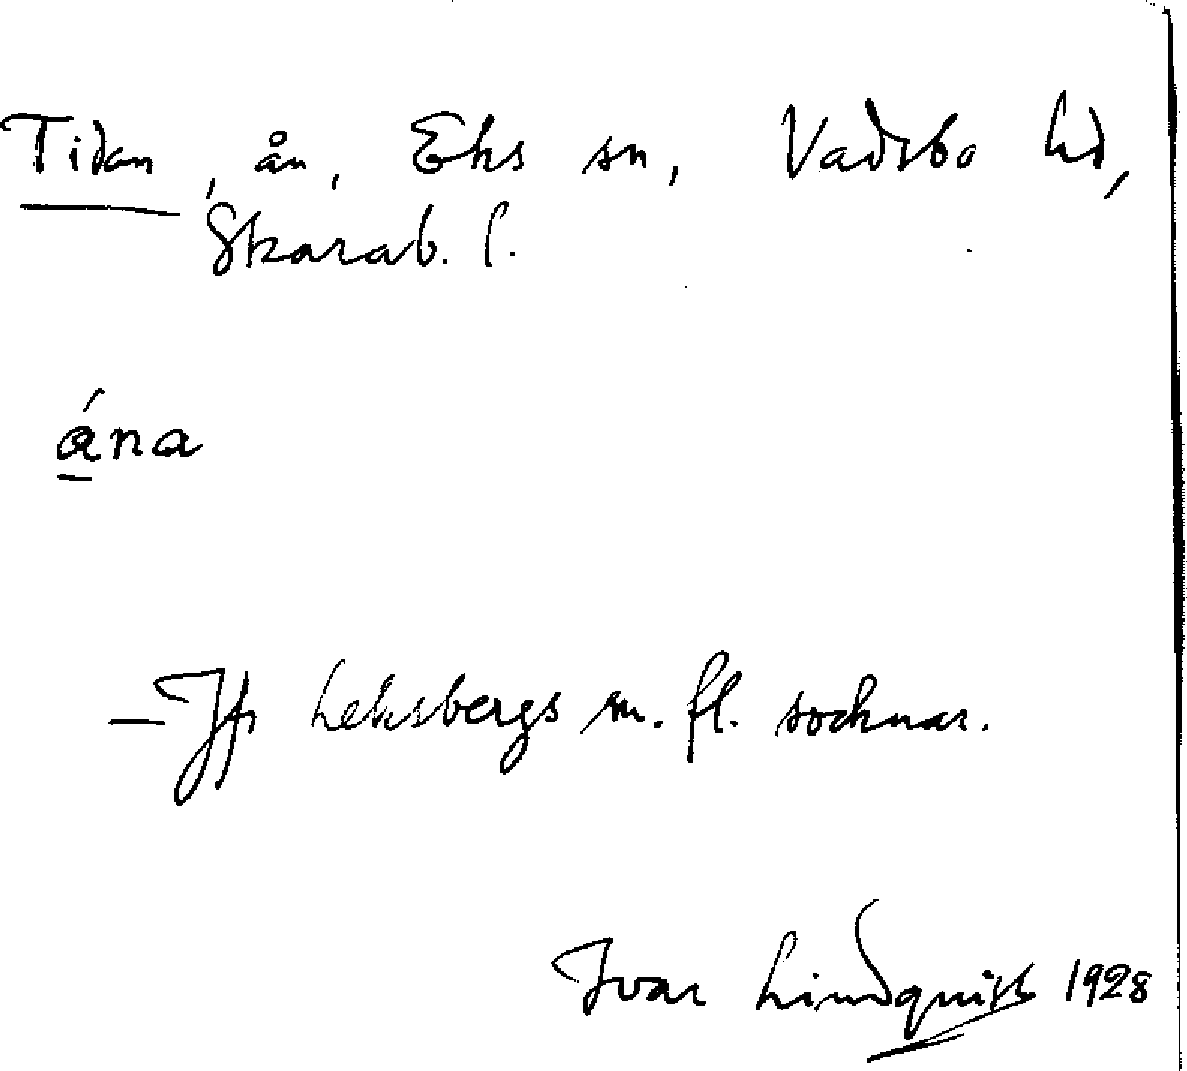 Tidan, ån, Eks sn, Vadsbo hd,
Skarab. l.
ána
— Jfr Leksbergs m. fl. socknar.
Ivar Lindquist 1928